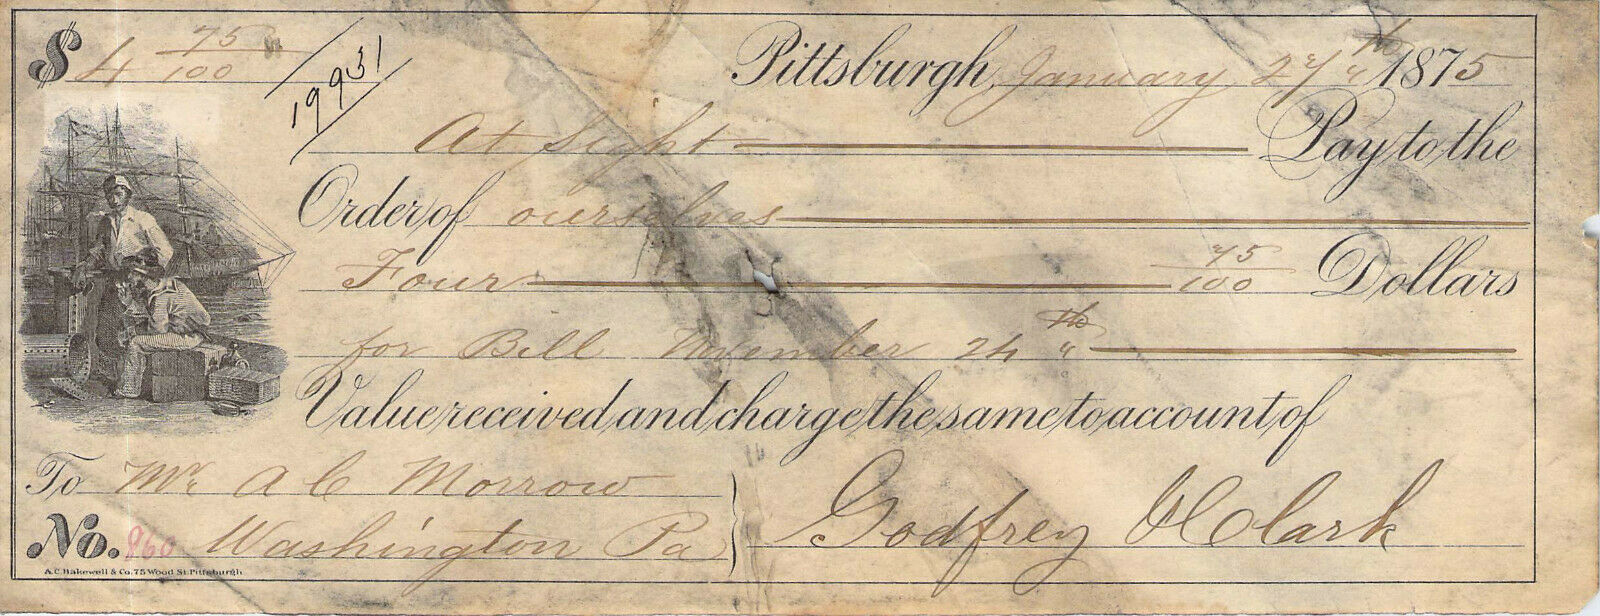 $ 4 75/100
19931
Pittsburgh, January 27th 1875
At Sight Pay to the
Order of ourselves
Four 75/100 Dollars
for Bill November 24th
Value received and charge the same to account of
To Mr A C Morrow
No. 860 Washington Pa
Godfrey & Clark
A.C. Bakewell & Co. 75 Wood St. Pittsburgh